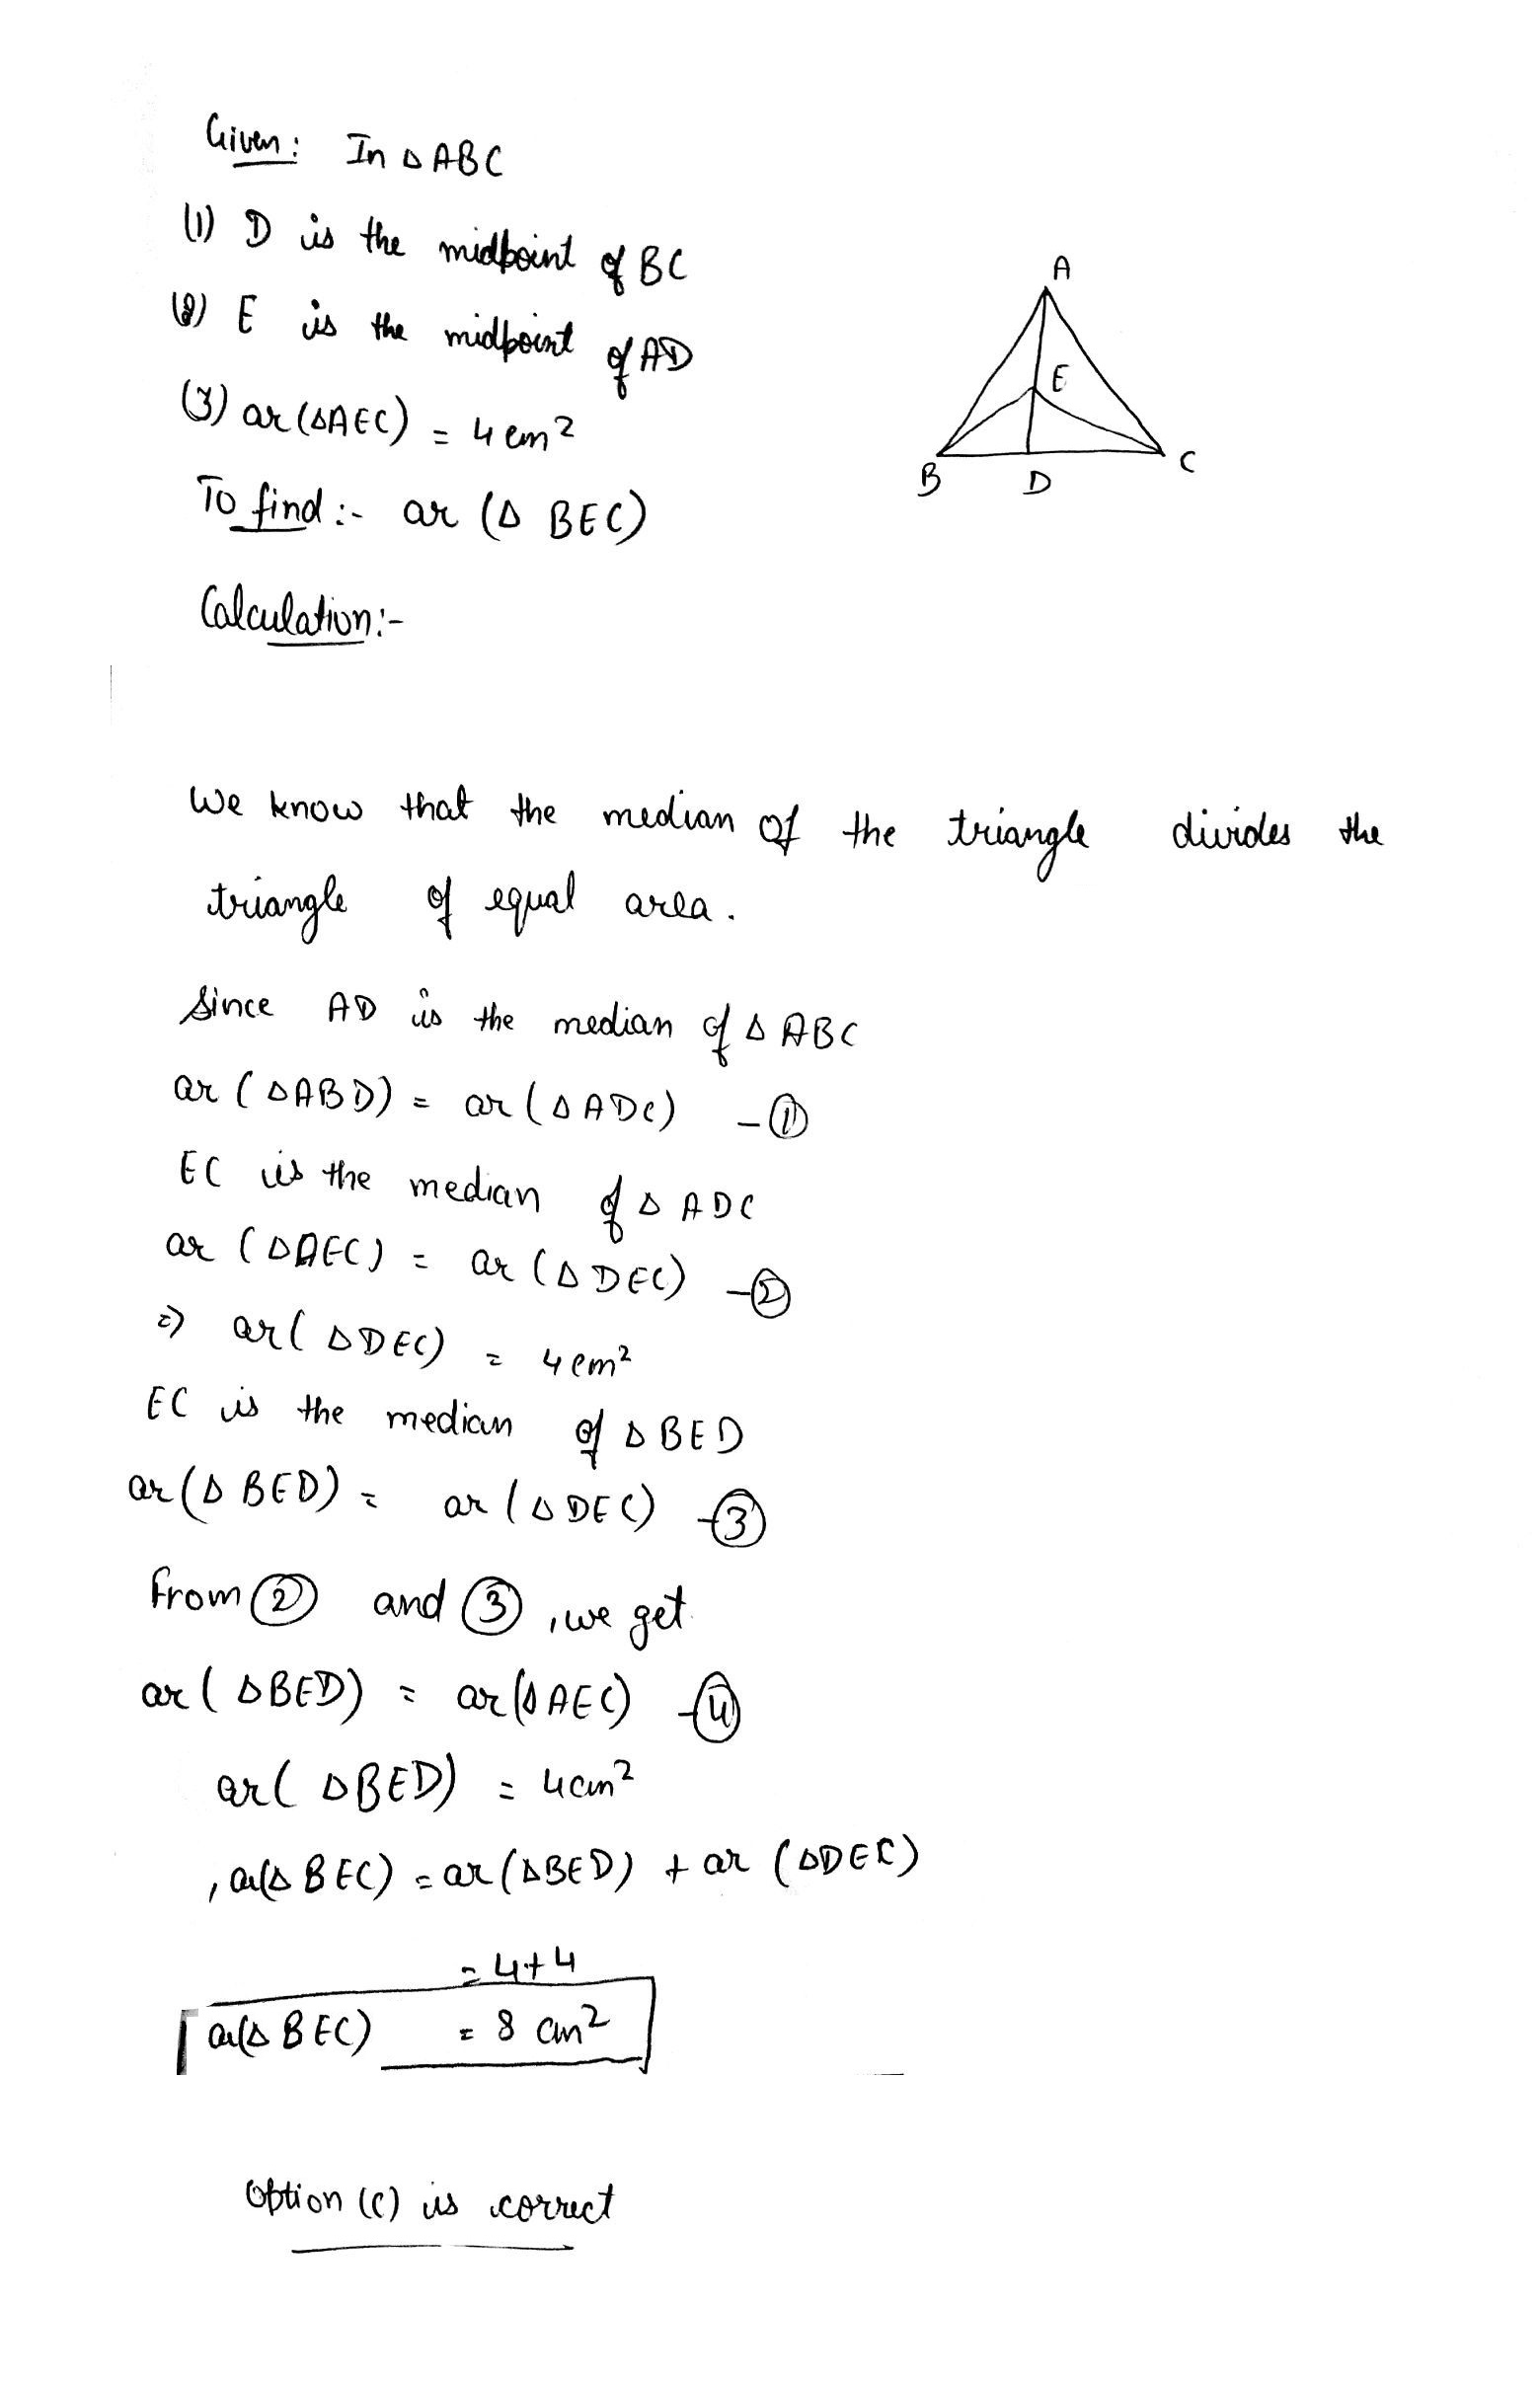 Given: In △ABC
(1) D is the midpoint of BC
(2) E is the midpoint of AD
(3) ar(△AEC) = 4 cm²
A
E
B
D
C
To find :- ar (△ BEC)
Calculation:-
We know that the median of the triangle divides the
triangle of equal area.
Since AD is the median of △ ABC
ar (△ABD) = ar (△ADC) -①
EC is the median of △ ADC
ar (△AEC) = ar (△DEC) -②
=> ar(△DEC) = 4cm²
EC is the median of △BED
ar(△ BED) = ar (△DEC) -③
From ② and ③, we get
ar(△BED) = ar(△AEC) -④
ar(△BED) = 4cm²
, ar(△ BEC) = ar(△BED) + ar (△DEC)
= 4+4
ar(△ BEC) = 8 cm²
Option (C) is correct